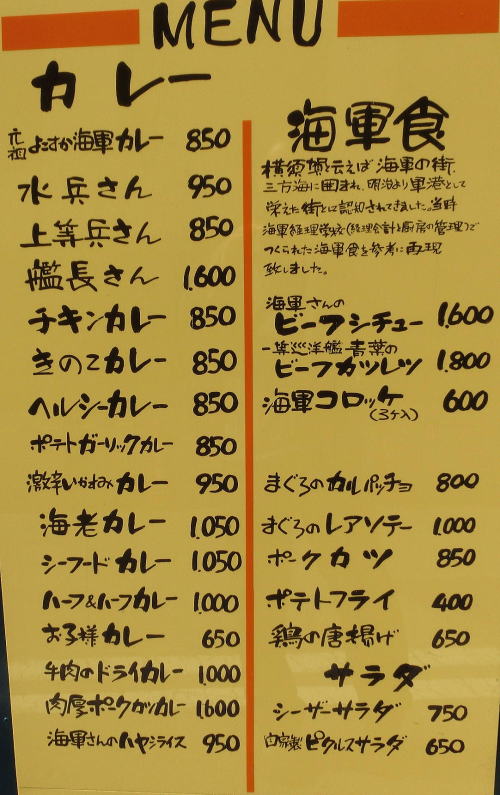 MENU
カレー
元祖よこすか海軍カレー 850
水兵さん 950
上等兵さん 850
艦長さん 1,600
チキンカレー 850
きのこカレー 850
ヘルシーカレー 850
ポテトガーリックカレー 850
激辛いかねみカレー 950
海老カレー 1,050
シーフードカレー 1,050
ハーフ&ハーフカレー 1,000
お子様カレー 650
牛肉のドライカレー 1,000
肉厚ポークカツカレー 1,600
海軍さんのハヤシライス 950
海軍食
横須賀と云えば海軍の街、
三方海に囲まれ、明治より軍港として
栄えた街とは認知されてきました。当時
海軍経理学校(経理会計と厨房の管理)で
つくられた海軍食を参考に再現
致しました。
海軍さんの
ビーフシチュー 1,600
一等巡洋艦青葉の
ビーフカツレツ 1,800
海軍コロッケ 600
(3ヶ入)
まぐろのカルパッチョ 800
まぐろのレアソテー 1,000
ポークカツ 850
ポテトフライ 400
鶏の唐揚げ 650
サラダ
シーザーサラダ 750
自家製ピクルスサラダ 650